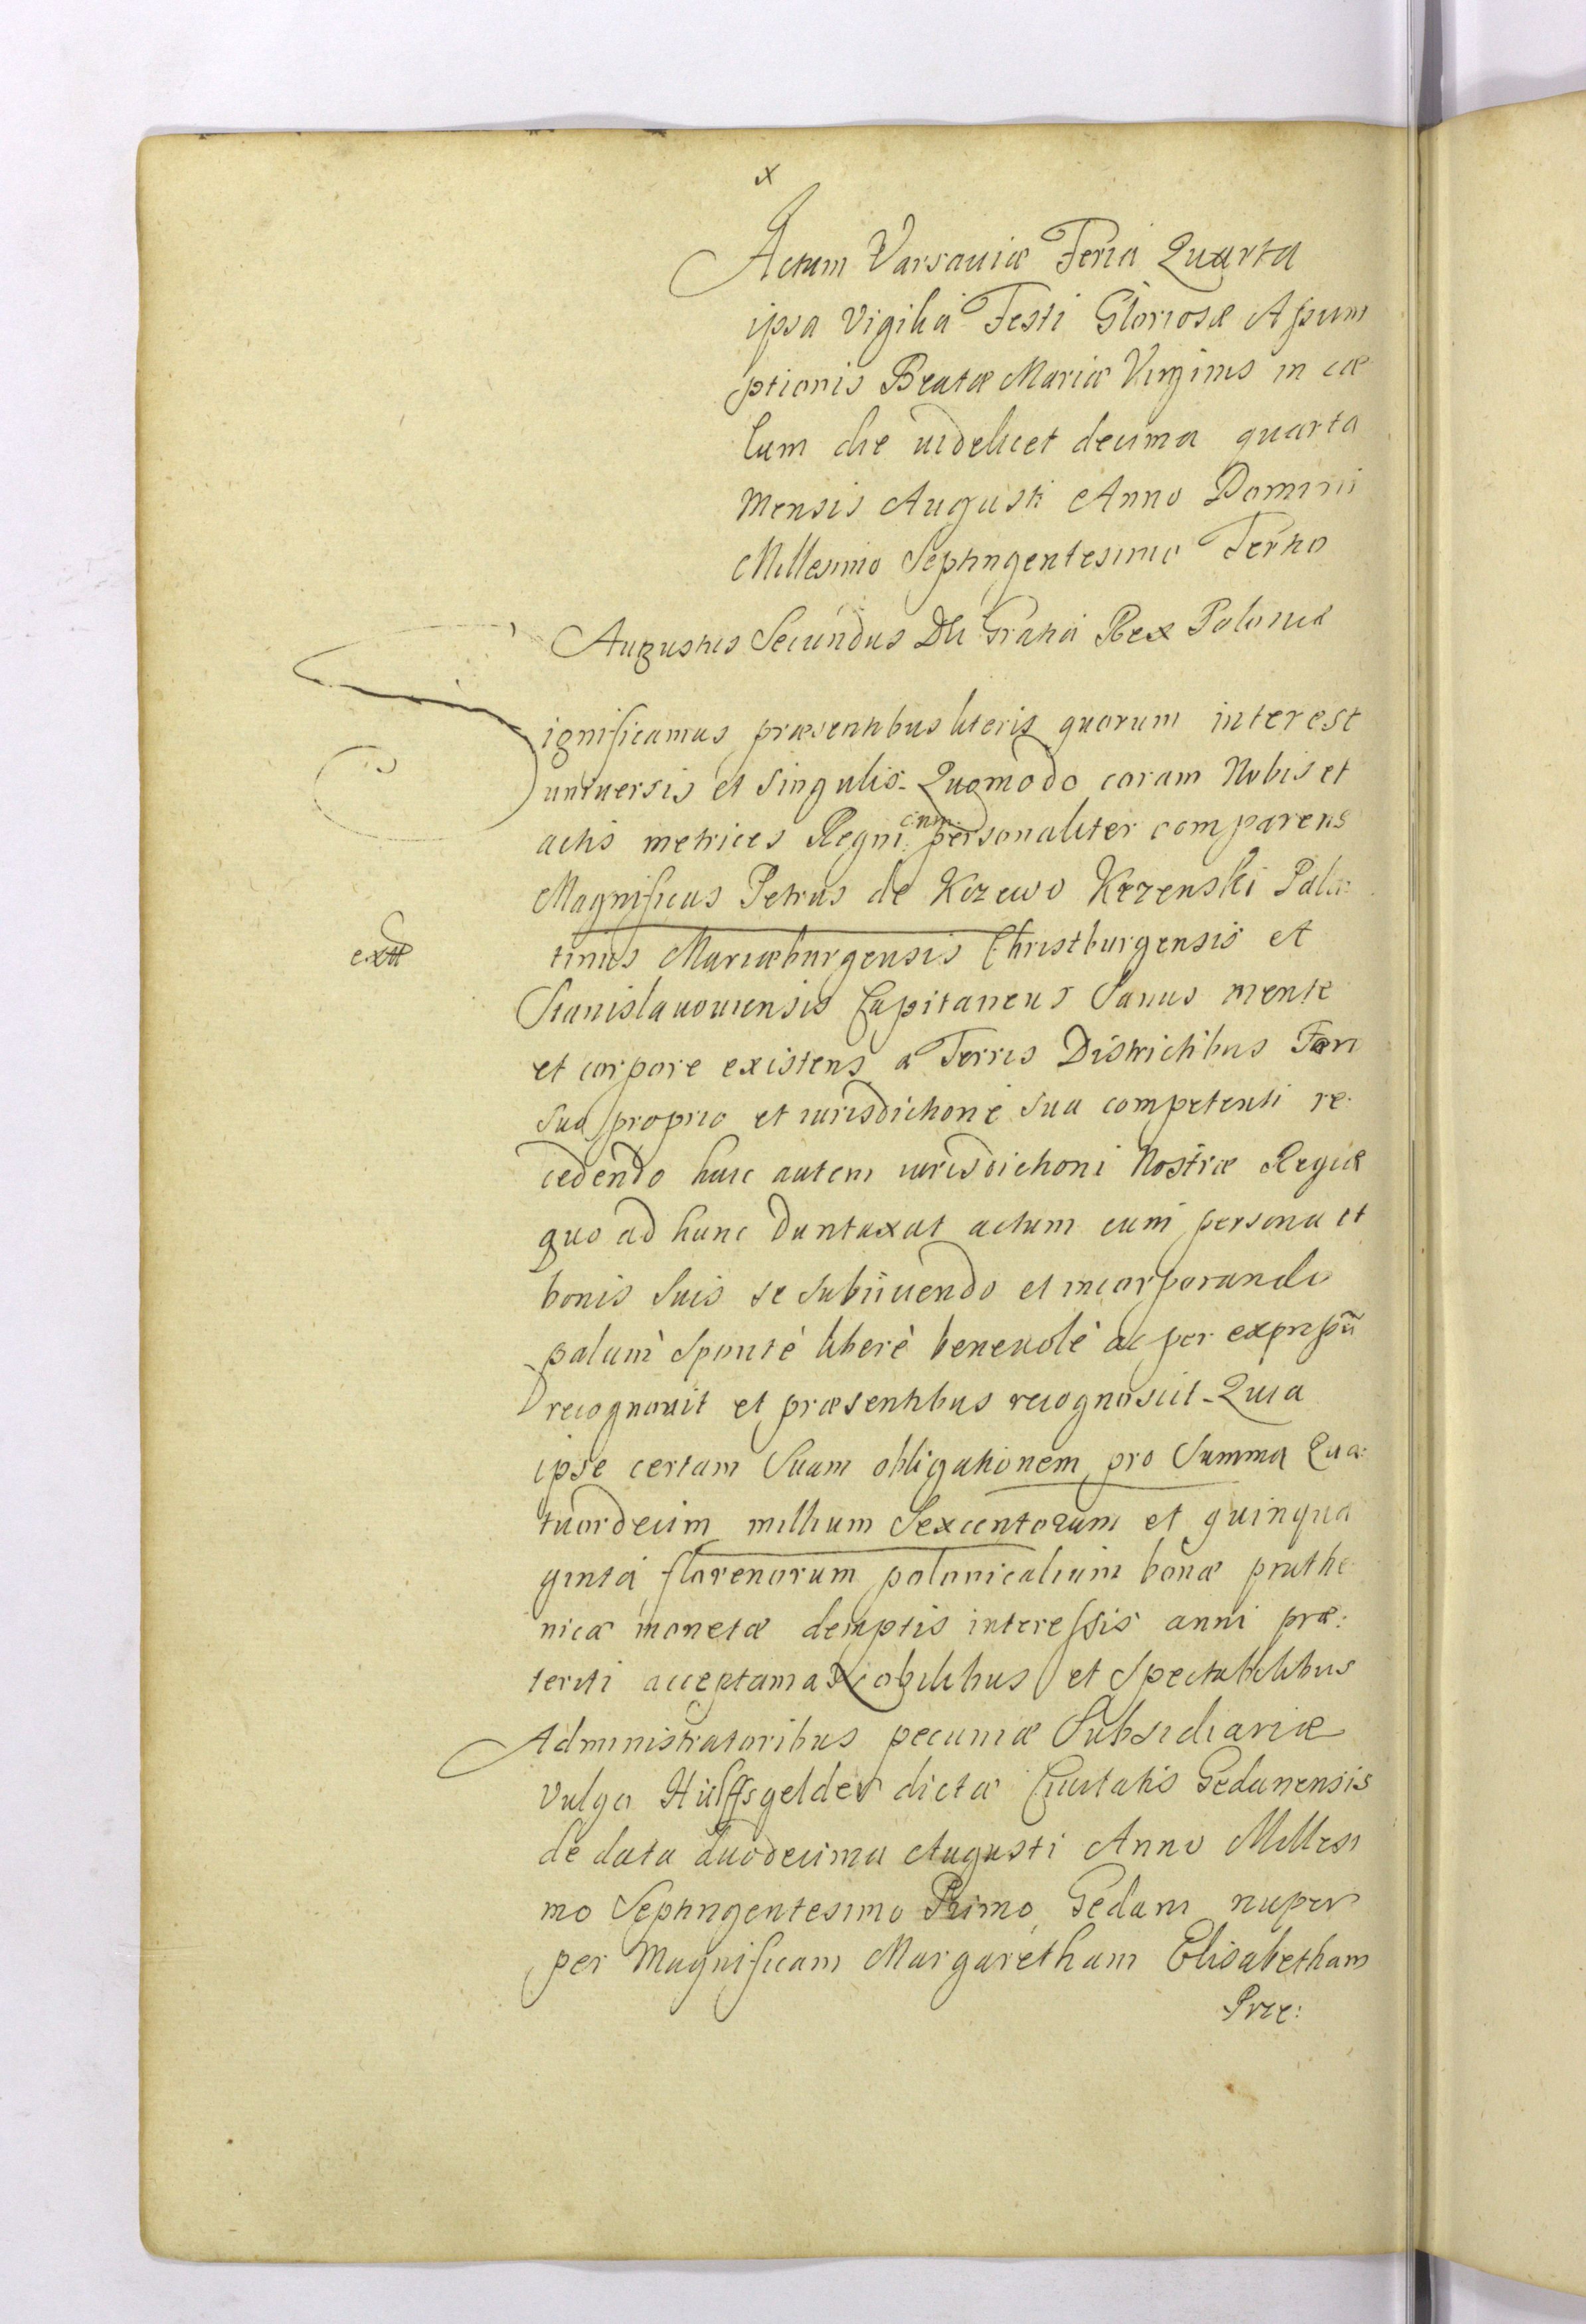 x
Actum Varsaviæ Feria Quarta
ipsa Vigilia Festi Gloriosæ Assum
ptionis Beatæ Mariæ Virginis in cæ
lum die videlicet decima quarta
Mensis Augusti Anno Domini
Millesimo Septingentesimo Tertio
Augustus Secundus Dei Gratia Rex Poloniæ
Significamus præsentibus literis quorum interest
universis et Singulis. Quomodo coram Nobis et
actis metrices Regni personaliter comparens
Magnificus Petrus de Kczewo Kczewski Pala:
extr
tinus Mariæburgensis Christburgensis et
Stanislavoviensis Capitaneus Sanus mente
et corpore existens a Terris Districtibus Foro
suo proprio et iurisdictione sua competenti re:
cedendo huic autem iurisdictioni Nostræ Regiæ
quo ad hunc duntaxat actum cum persona et
bonis suis se subiiciendo et incorporando
palam Sponte libere benevole ac per expressum
recognovit et præsentibus recognoscit. Quia
ipse certam Suam obligationem pro Summa Qua:
tuordecim millium Sexcentorum et quinqua
ginta florenorum polonicalium bonæ pruthe
nicæ monetæ demptis interessis anni præ:
teriti acceptam a Nobilibus et Spectabilibus
Administratoribus pecuniæ Subsidiariæ
vulgo Hülffsgelder dictæ Civitatis Gedanensis
de data duodecima Augusti Anno Millesi
mo Septingentesimo Primo Gedani nuper
per Magnificam Margaretham Elisabetham
Prze: